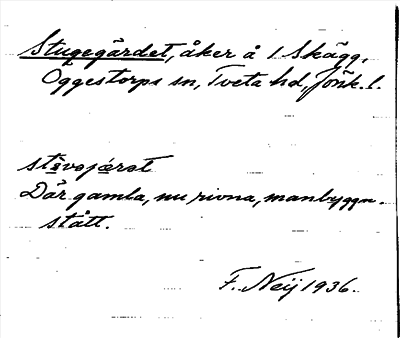 Stugegärdet, åker å 1 Skägg,
Oggestorps sn, Tveta hd, Jönk. l.
Där gamla, nu rivna, manbyggn.
stått.
F. Neij 1936.